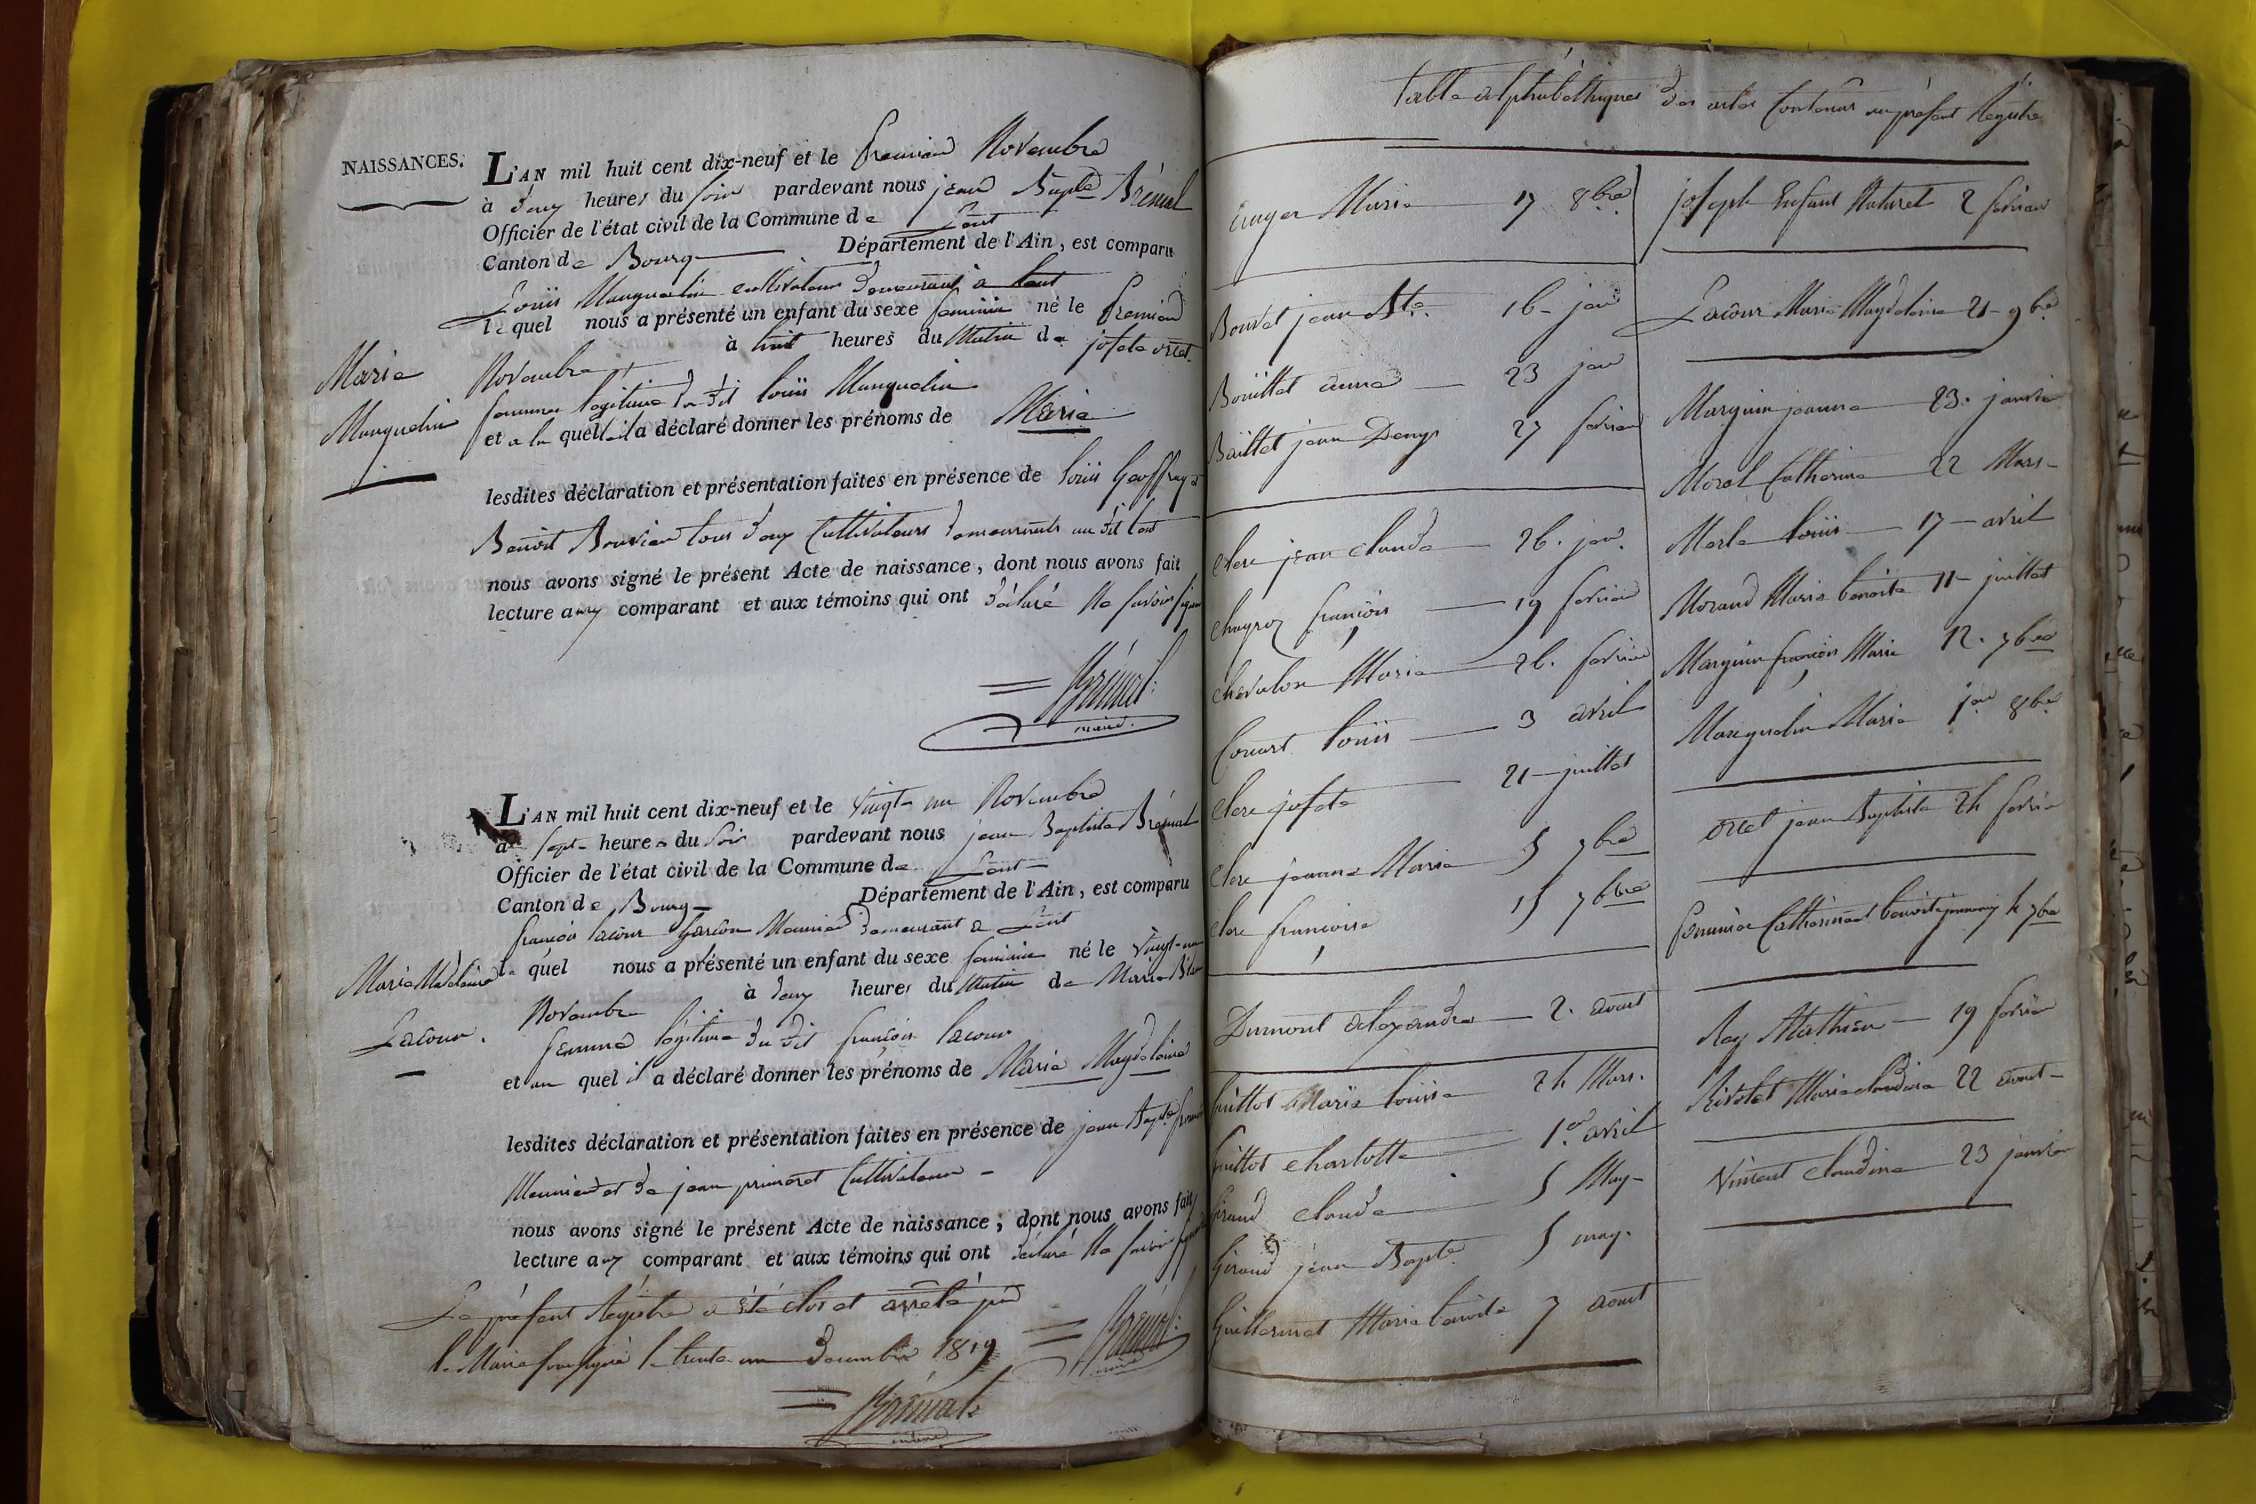 NAISSANCES.
L'AN mil huit cent dix-neuf et le premier Novembre
à deux heures du soir pardevant nous jean Bapte Brémal
Officier de l'état civil de la Commune de Lent
Canton de Bourg Département de l'Ain, est comparu
Louis Manguelin cultivateur demeurant à Lent
lequel nous a présenté un enfant du sexe feminin né le premier
Novembre à huit heures du Matin de josete
femme légitime du dit louis Manguelin
et a la quelle il a déclaré donner les prénoms de Marie
Marie
Manguelin
lesdites déclaration et présentation faites en présence de louis Geoffray et
Benoit Bouvier tous deux Cultivateurs demeurants au dit lent
nous avons signé le présent Acte de naissance, dont nous avons fait
lecture aux comparant et aux témoins qui ont déclaré Ne savoir signer
Brémal
maire
L'AN mil huit cent dix-neuf et le vingt-un Novembre
à sept heures du soir pardevant nous jean Baptiste Brémal
Officier de l'état civil de la Commune de Lent
Canton de Bourg Département de l'Ain, est comparu
françois lacour garçon Meunier demeurant a Lent
le quel nous a présenté un enfant du sexe feminin né le vingt-un
Novembre à deux heures du Matin de Marie
femme légitime du dit françois lacour
et au quel il a déclaré donner les prénoms de Marie Magdelaine
Marie Madelaine
Lacour.
lesdites déclaration et présentation faites en présence de jean Bapte
Meunier et de jean Cultivateur
nous avons signé le présent Acte de naissance; dont nous avons fait
lecture aux comparant et aux témoins qui ont déclaré Ne savoir signer
Le présent Régistre a été clos et arrêté par
le Maire soussigné le trente un decembre 1819
Brémal
maire
Brémal
maire
Table alphabéthiques des actes Contenus au présent Régistre
Marie 17 8bre
Bouvet jean Bte. 16 jav
Boüillet anne 23 jav
Baillet jean Denys 27 fevrier
Clerc jean claude 26. jav.
Chayroz françois 19 fevrier
Chevalon Marie 26. fevrier
louis 3 avril
Clerc josete 21 juillet
Clerc jeanne Marie 5 7bre
Clerc françoise 15 7bre
Dumont alexandre 2. aout
Guillot Marie louise 24 Mars.
Guillot charlotte 1er avril
Giraud claude 5 May
Giraud jean Bapte 5 may.
Guillermet Marie benoite 7 aout
joseph Enfant Naturel 2 fevrier
Lacour Marie Magdelaine 21 9bre
Marguin jeanne 23. janvier
Morel Catherine 22 Mars
Merle louis 17 avril
Morand Marie benoite 11 juillet
Marguin françois Marie 12. 7bre
Manguelin Marie 1er 8bre
jean Baptiste 24 fevrier
Catherine et benoite 4 7bre
Rey Mathieu 19 fevrier
Rivolet Marie claudine 22 aout
Vincent claudine 23 janvier